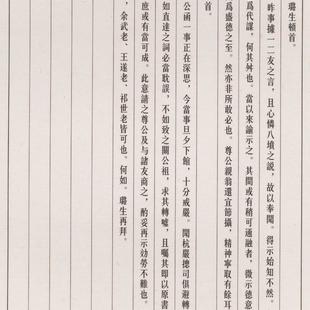 璐生頓首。
昨事據一二友之言，且心憐八墳之説，故以奉聞。得示始知不然。
爲代謀，何其舛也。當以來諭示之。其間或有稍可通融者，微示德意
爲盛德之至。然亦非所敢必也。尊公親翁還宜節攝，精神寧取有餘耳
首。
公函一事正在深思，今當事旦夕下館，十分戒嚴。聞杭嚴揔司俱避轉
如直達之詞必當耽誤，不如致之關公祖，求其轉噓，且囑其即以原書
庶或有當可成。此意請之尊公及与諸友商之，酌妥再示効勞不難也。
，余武老、王遂老、祁世老皆可也。何如。璐生再拜。